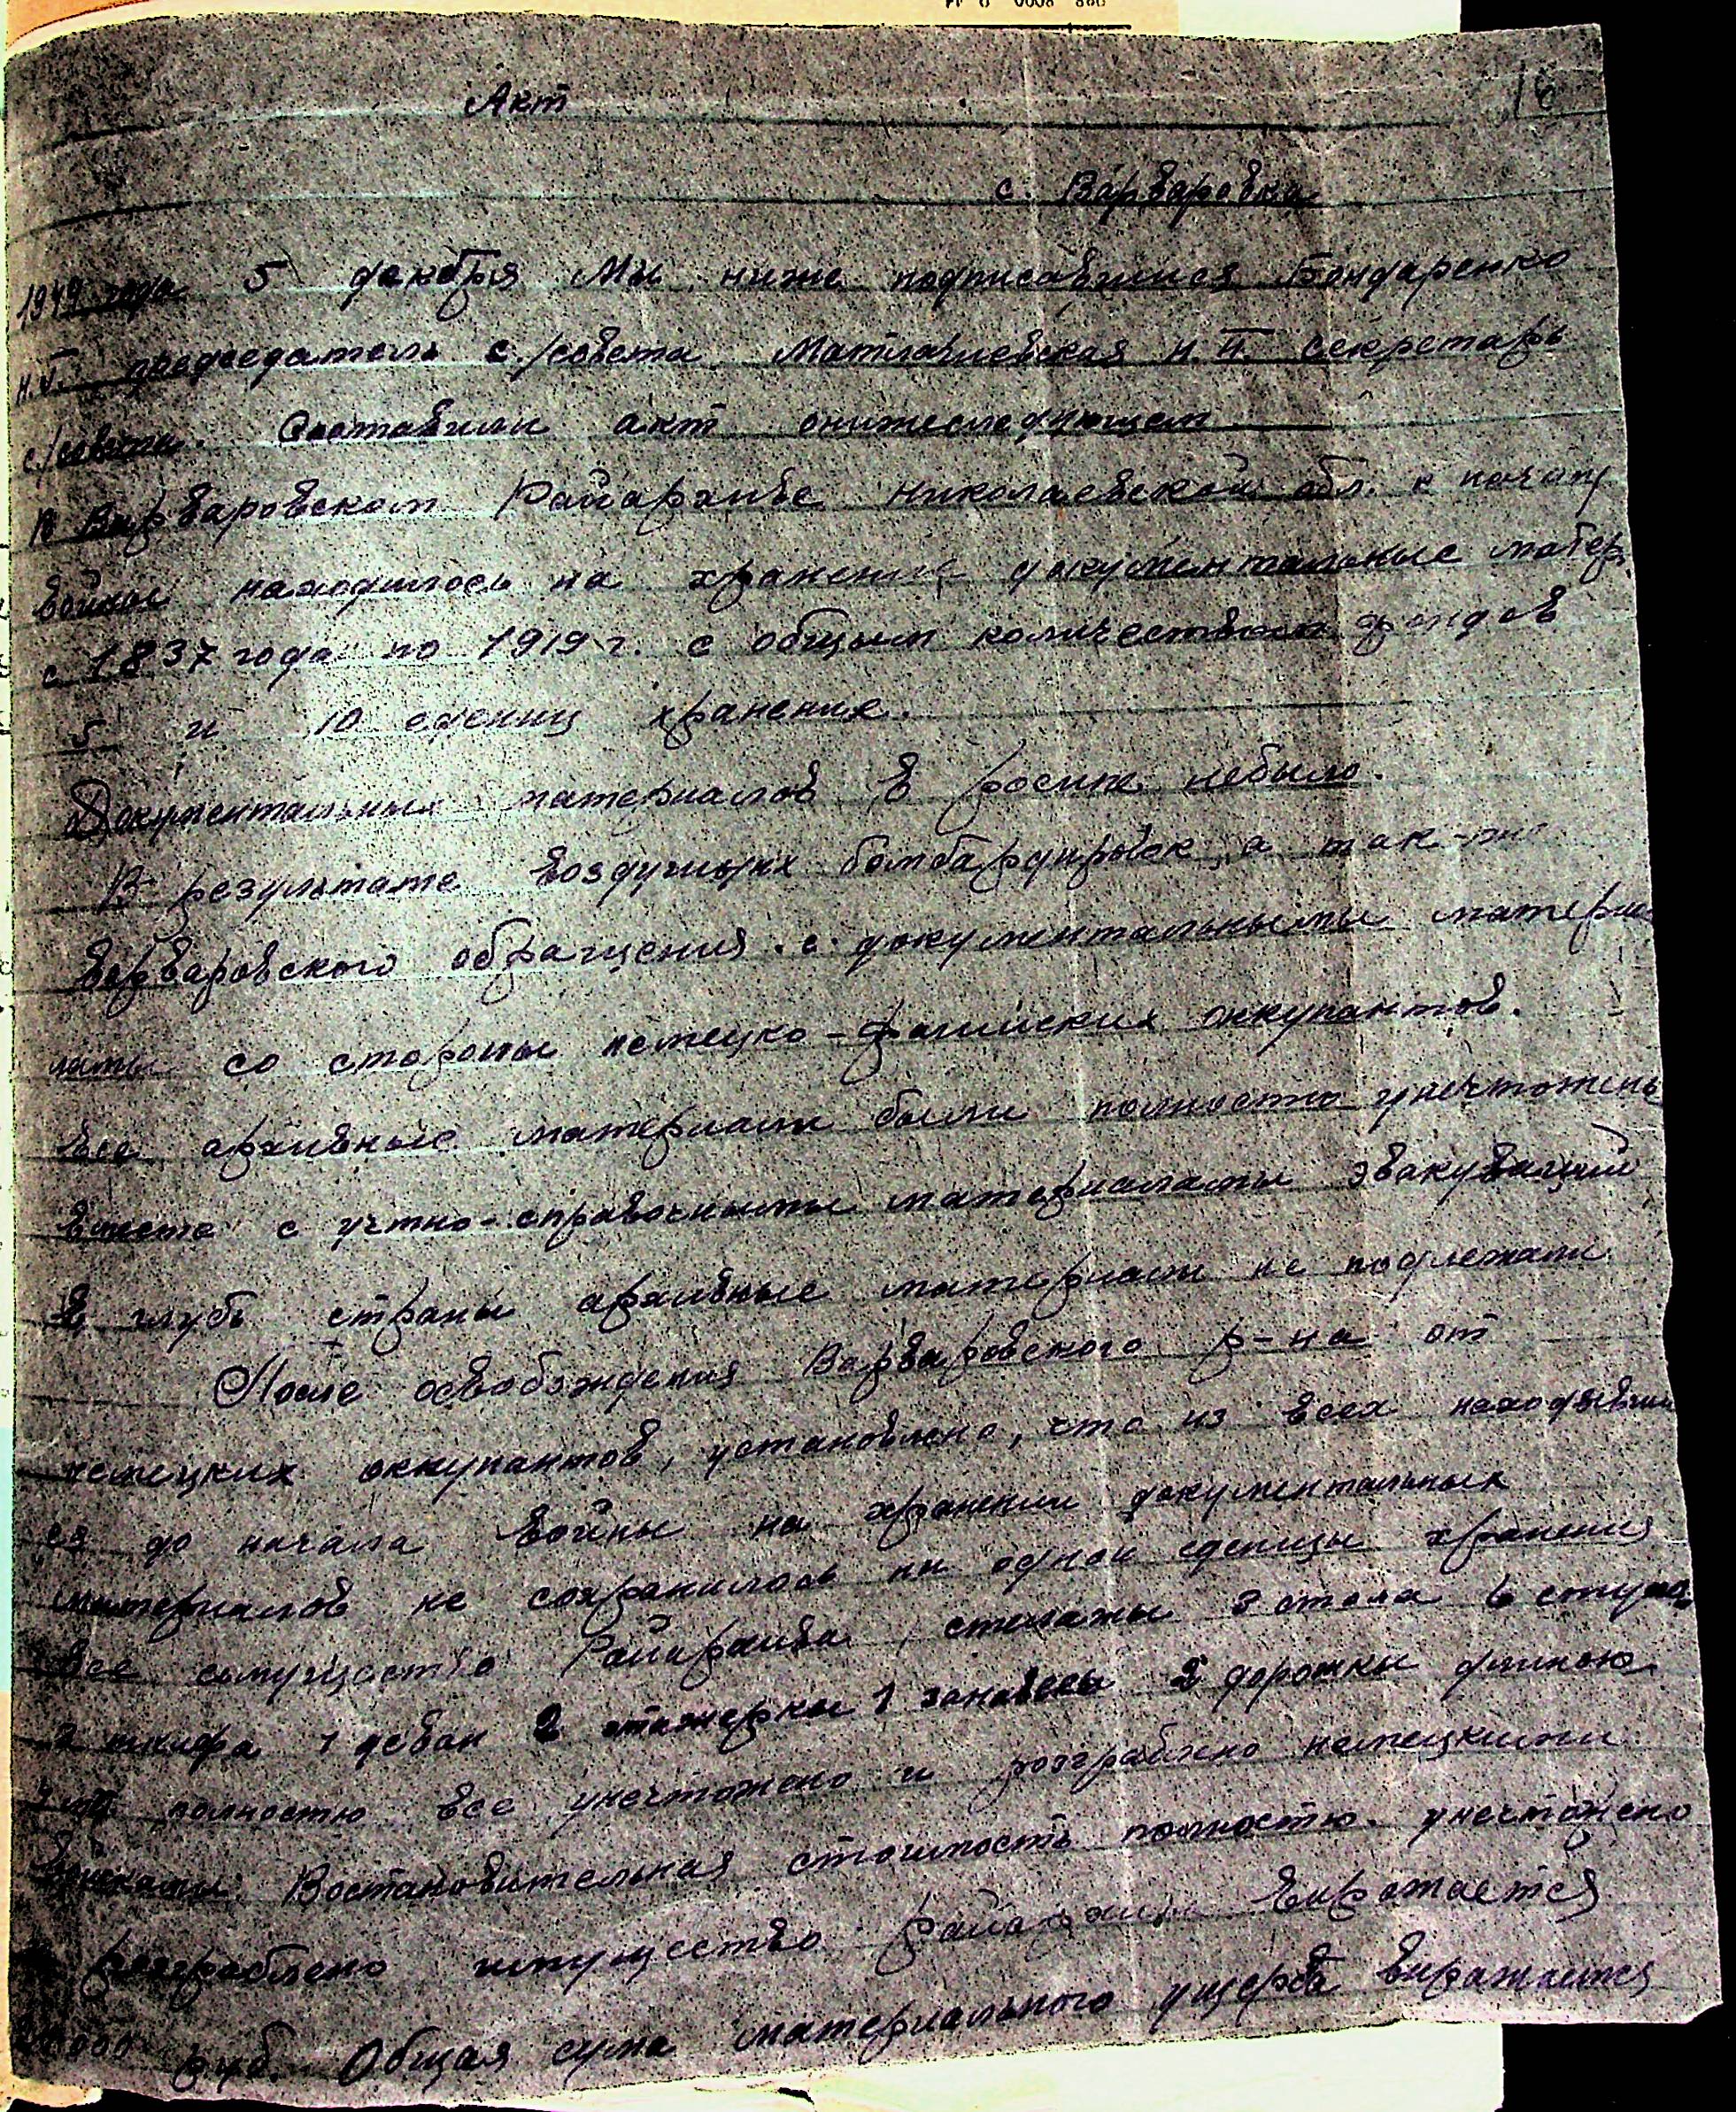 16
Акт
с. Варваровка
1949 года 5 декабря Мы ниже подписавшиеся Бондаренко
председатель с/совета Матлачиевская Н.П. секретарь
с/совета. Составили акт онижеследующем
В Варваровском Райархиве Николаевской обл. к началу
войны находилось на хранении документальные матер.
с 1837 года по 1919 г. с общым количеством фондов
5 и 10 едениц хранения.
Документальных материалов в росипи небыло.
В результате воздушных бомбардировок, а так-же
варваровского обращения с документальными материа
лами со стороны немецко-фашиских оккупантов.
Все архивные материали были полностю унечтожены
вместе с учтно-справочными материалами эвакуваций
в глубь страны архивные материали не подлежали
После освобождения Варваровского р-на от
немецких оккупантов, установлено, что из всех находивши
ся до начала войны на хранении документальных
материалов не сохранилось ни одной еденицы хранения
Все имущество Райархива, стилажы 3 стола 6 стула
2 шкафа 1 деван 2 этажерки 1 занавесы 2 дорожки длиною
полностю все унечтожено и розграблено немецкими
войсками. Востановительная стоимость полностю унечтожено
разграблено имущество райархива выражается
000 руб. Общая сума материального ущерба выражается